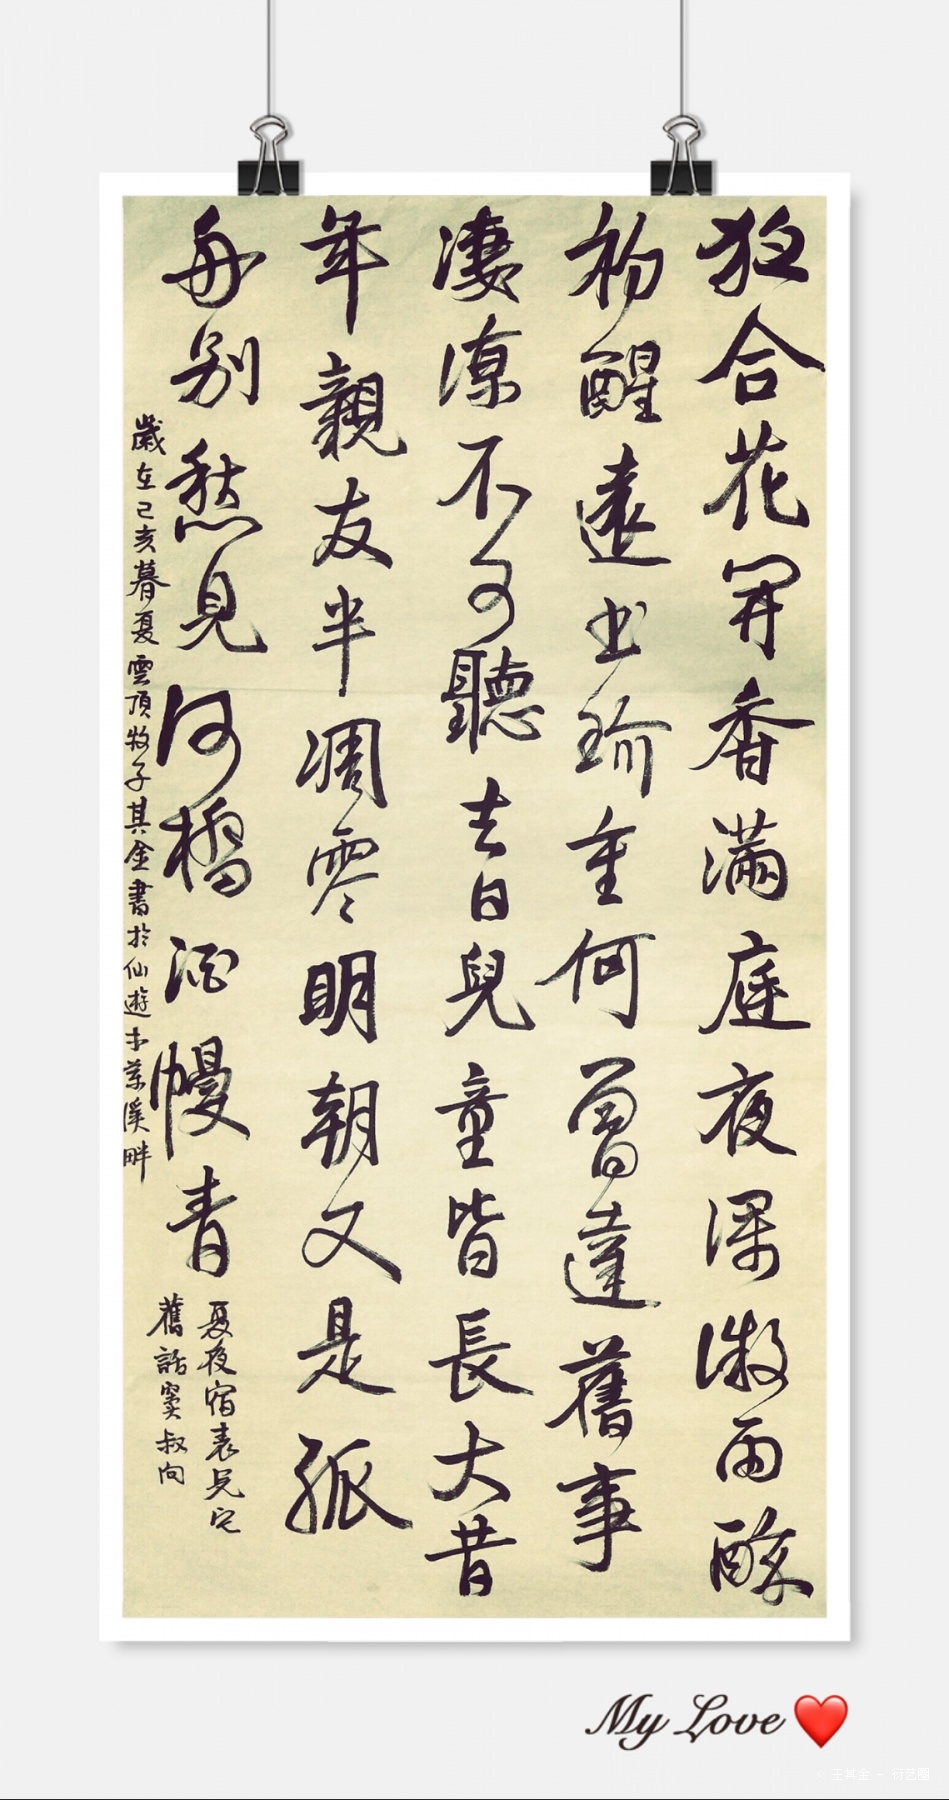 夜合花開香滿庭夜深微雨醉
初醒遠書珍重何曾達舊事
淒涼不可聽去日兒童皆長大昔
年親友半凋零明朝又是孤
舟別愁見河橋酒幔青
夏夜宿表兄宅
舊話竇叔向
歲在己亥暮夏雲頂牧子其金書於仙遊木蘭溪畔
My Love ❤️
王其金 — 衍艺圈